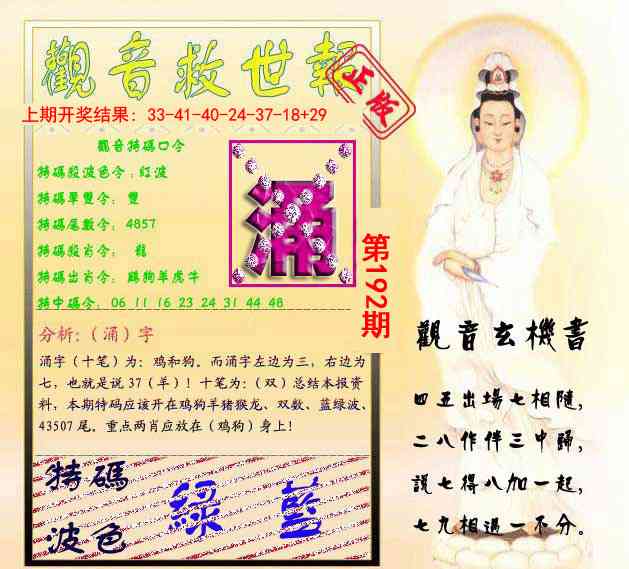 觀音救世報
正版
上期开奖结果：33-41-40-24-37-18+29
觀音特碼口令
特碼殺波色令：紅波
特碼單雙令：雙
特碼尾數令：4857
特碼殺肖令：龍
特碼出肖令：鷄狗羊虎牛
特中碼令：06 11 16 23 24 31 44 48
涌
第192期
分析：（涌）字
涌字（十笔）为：鸡和狗。而涌字左边为三，右边为
七，也就是说37（羊）！十笔为：（双）总结本报资
料，本期特码应该开在鸡狗羊猪猴龙、双数、蓝绿波、
43507尾。重点两肖应放在（鸡狗）身上！
特碼
波色
綠 藍
觀音玄機書
四五出場七相隨，
二八作伴三中歸，
説七得八加一起，
七九相遇一不分。